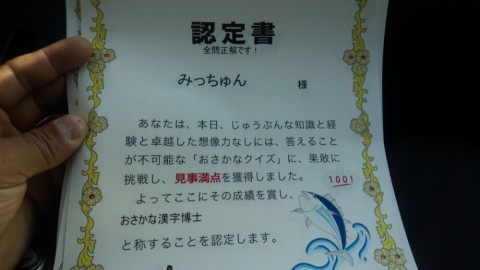 認定書
全問正解です！
みっちゅん 様
あなたは、本日、じゅうぶんな知識と経
験と卓越した想像力なしには、答えること
が不可能な「おさかなクイズ」に、果敢に
挑戦し、見事満点を獲得しました。
100!
よってここにその成績を賞し、
おさかな漢字博士
と称することを認定します。